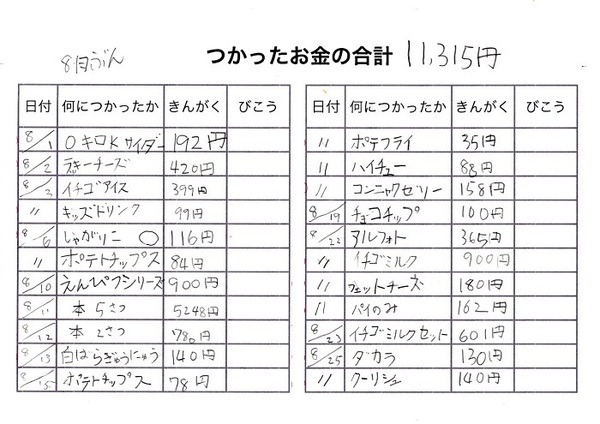 8月ぶん つかったお金の合計 11,315円
日付 何につかったか きんがく びこう
8/1 0キロKサイダー 192円
8/2 チーズ 420円
8/3 イチゴアイス 399円
〃 キッズドリンク 99円
8/6 じゃがりこ ○ 116円
〃 ポテトチップス 84円
8/10 えんぴつシリーズ 900円
8/11 本5さつ 5248円
8/12 本2さつ 780円
8/13 白ばらぎゅうにゅう 140円
8/15 ポテトチップス 78円
日付 何につかったか きんがく びこう
〃 ポテフライ 35円
〃 ハイチュー 88円
〃 コンニャクゼリー 158円
8/19 チョコチップ 100円
8/22 アルフォト 365円
〃 イチゴミルク 900円
〃 フェットチーズ 180円
〃 パイのみ 162円
8/23 イチゴミルクセット 601円
8/25 ダカラ 130円
〃 クーリシュ 140円